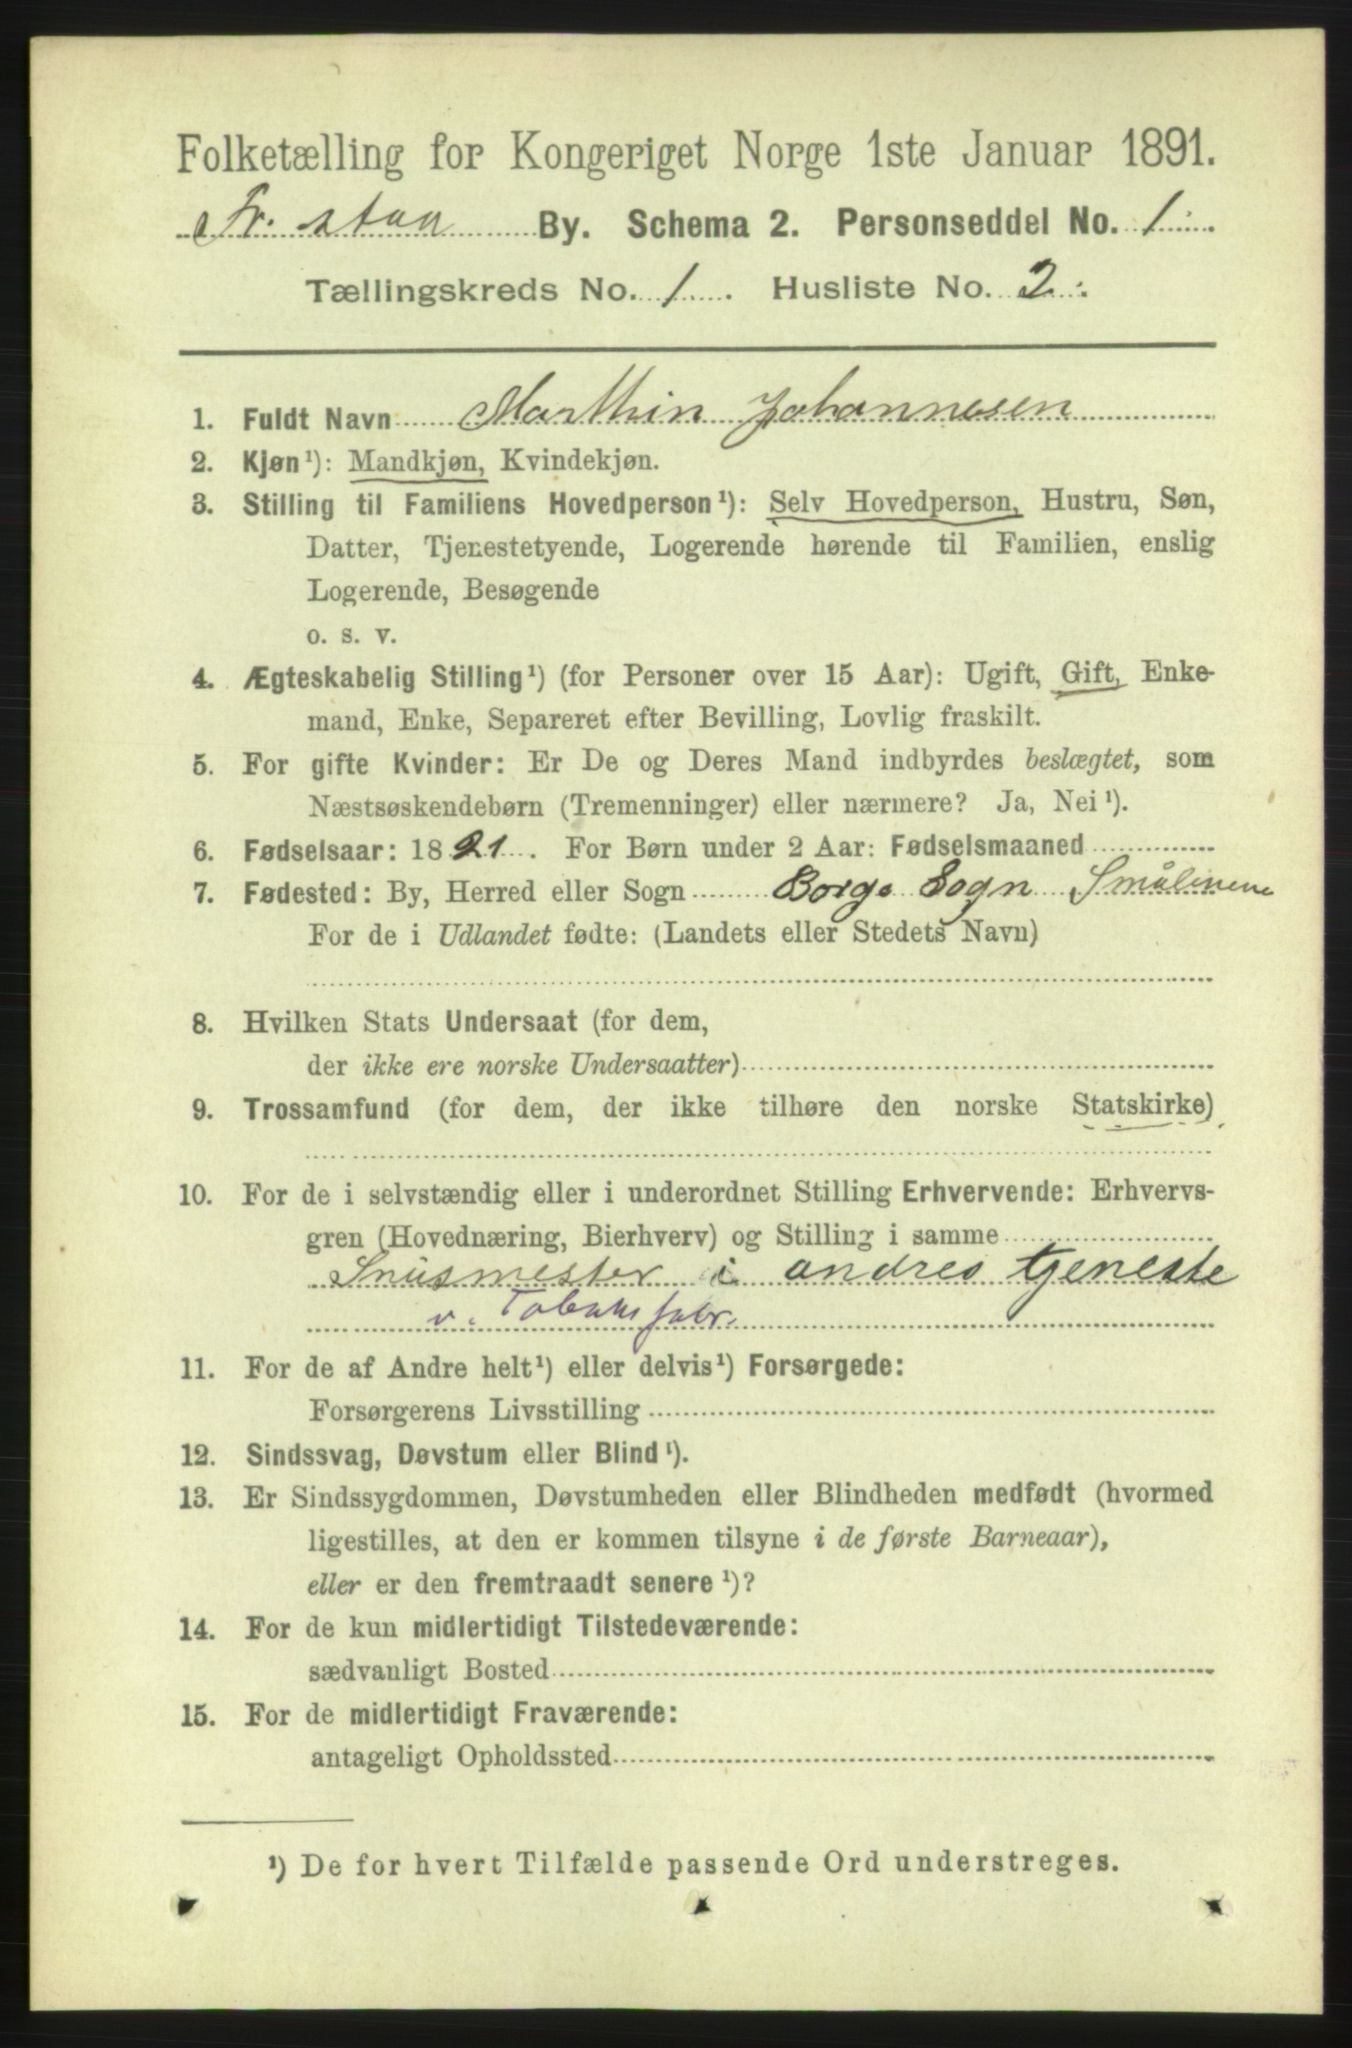 Folketælling for Kongeriget Norge 1ste Januar 1891.
Fr. stad By. Schema 2. Personseddel No. 1.
Tællingskreds No. 1. Husliste No. 2.
1. Fuldt Navn Marthin Johannesen
2. Kjøn¹): Mandkjøn, Kvindekjøn.
3. Stilling til Familiens Hovedperson¹): Selv Hovedperson, Hustru, Søn,
Datter, Tjenestetyende, Logerende hørende til Familien, enslig
Logerende, Besøgende
o. s. v.
4. Ægteskabelig Stilling¹) (for Personer over 15 Aar): Ugift, Gift, Enke-
mand, Enke, Separeret efter Bevilling, Lovlig fraskilt.
5. For gifte Kvinder: Er De og Deres Mand indbyrdes beslægtet, som
Næstsøskendebørn (Tremenninger) eller nærmere? Ja, Nei¹).
6. Fødselsaar: 1821. For Børn under 2 Aar: Fødselsmaaned
7. Fødested: By, Herred eller Sogn Borge Sogn Smålenene
For de i Udlandet fødte: (Landets eller Stedets Navn)
8. Hvilken Stats Undersaat (for dem,
der ikke ere norske Undersaatter)
9. Trossamfund (for dem, der ikke tilhøre den norske Statskirke)
10. For de i selvstændig eller i underordnet Stilling Erhvervende: Erhvervs-
gren (Hovednæring, Bierhverv) og Stilling i samme
Snusmester i andres tjeneste
v. Tobaksfabr.
11. For de af Andre helt¹) eller delvis¹) Forsørgede:
Forsørgerens Livsstilling
12. Sindssvag, Døvstum eller Blind¹).
13. Er Sindssygdommen, Døvstumheden eller Blindheden medfødt (hvormed
ligestilles, at den er kommen tilsyne i de første Barneaar),
eller er den fremtraadt senere¹)?
14. For de kun midlertidigt Tilstedeværende:
sædvanligt Bosted
15. For de midlertidigt Fraværende:
antageligt Opholdssted
¹) De for hvert Tilfælde passende Ord understreges.